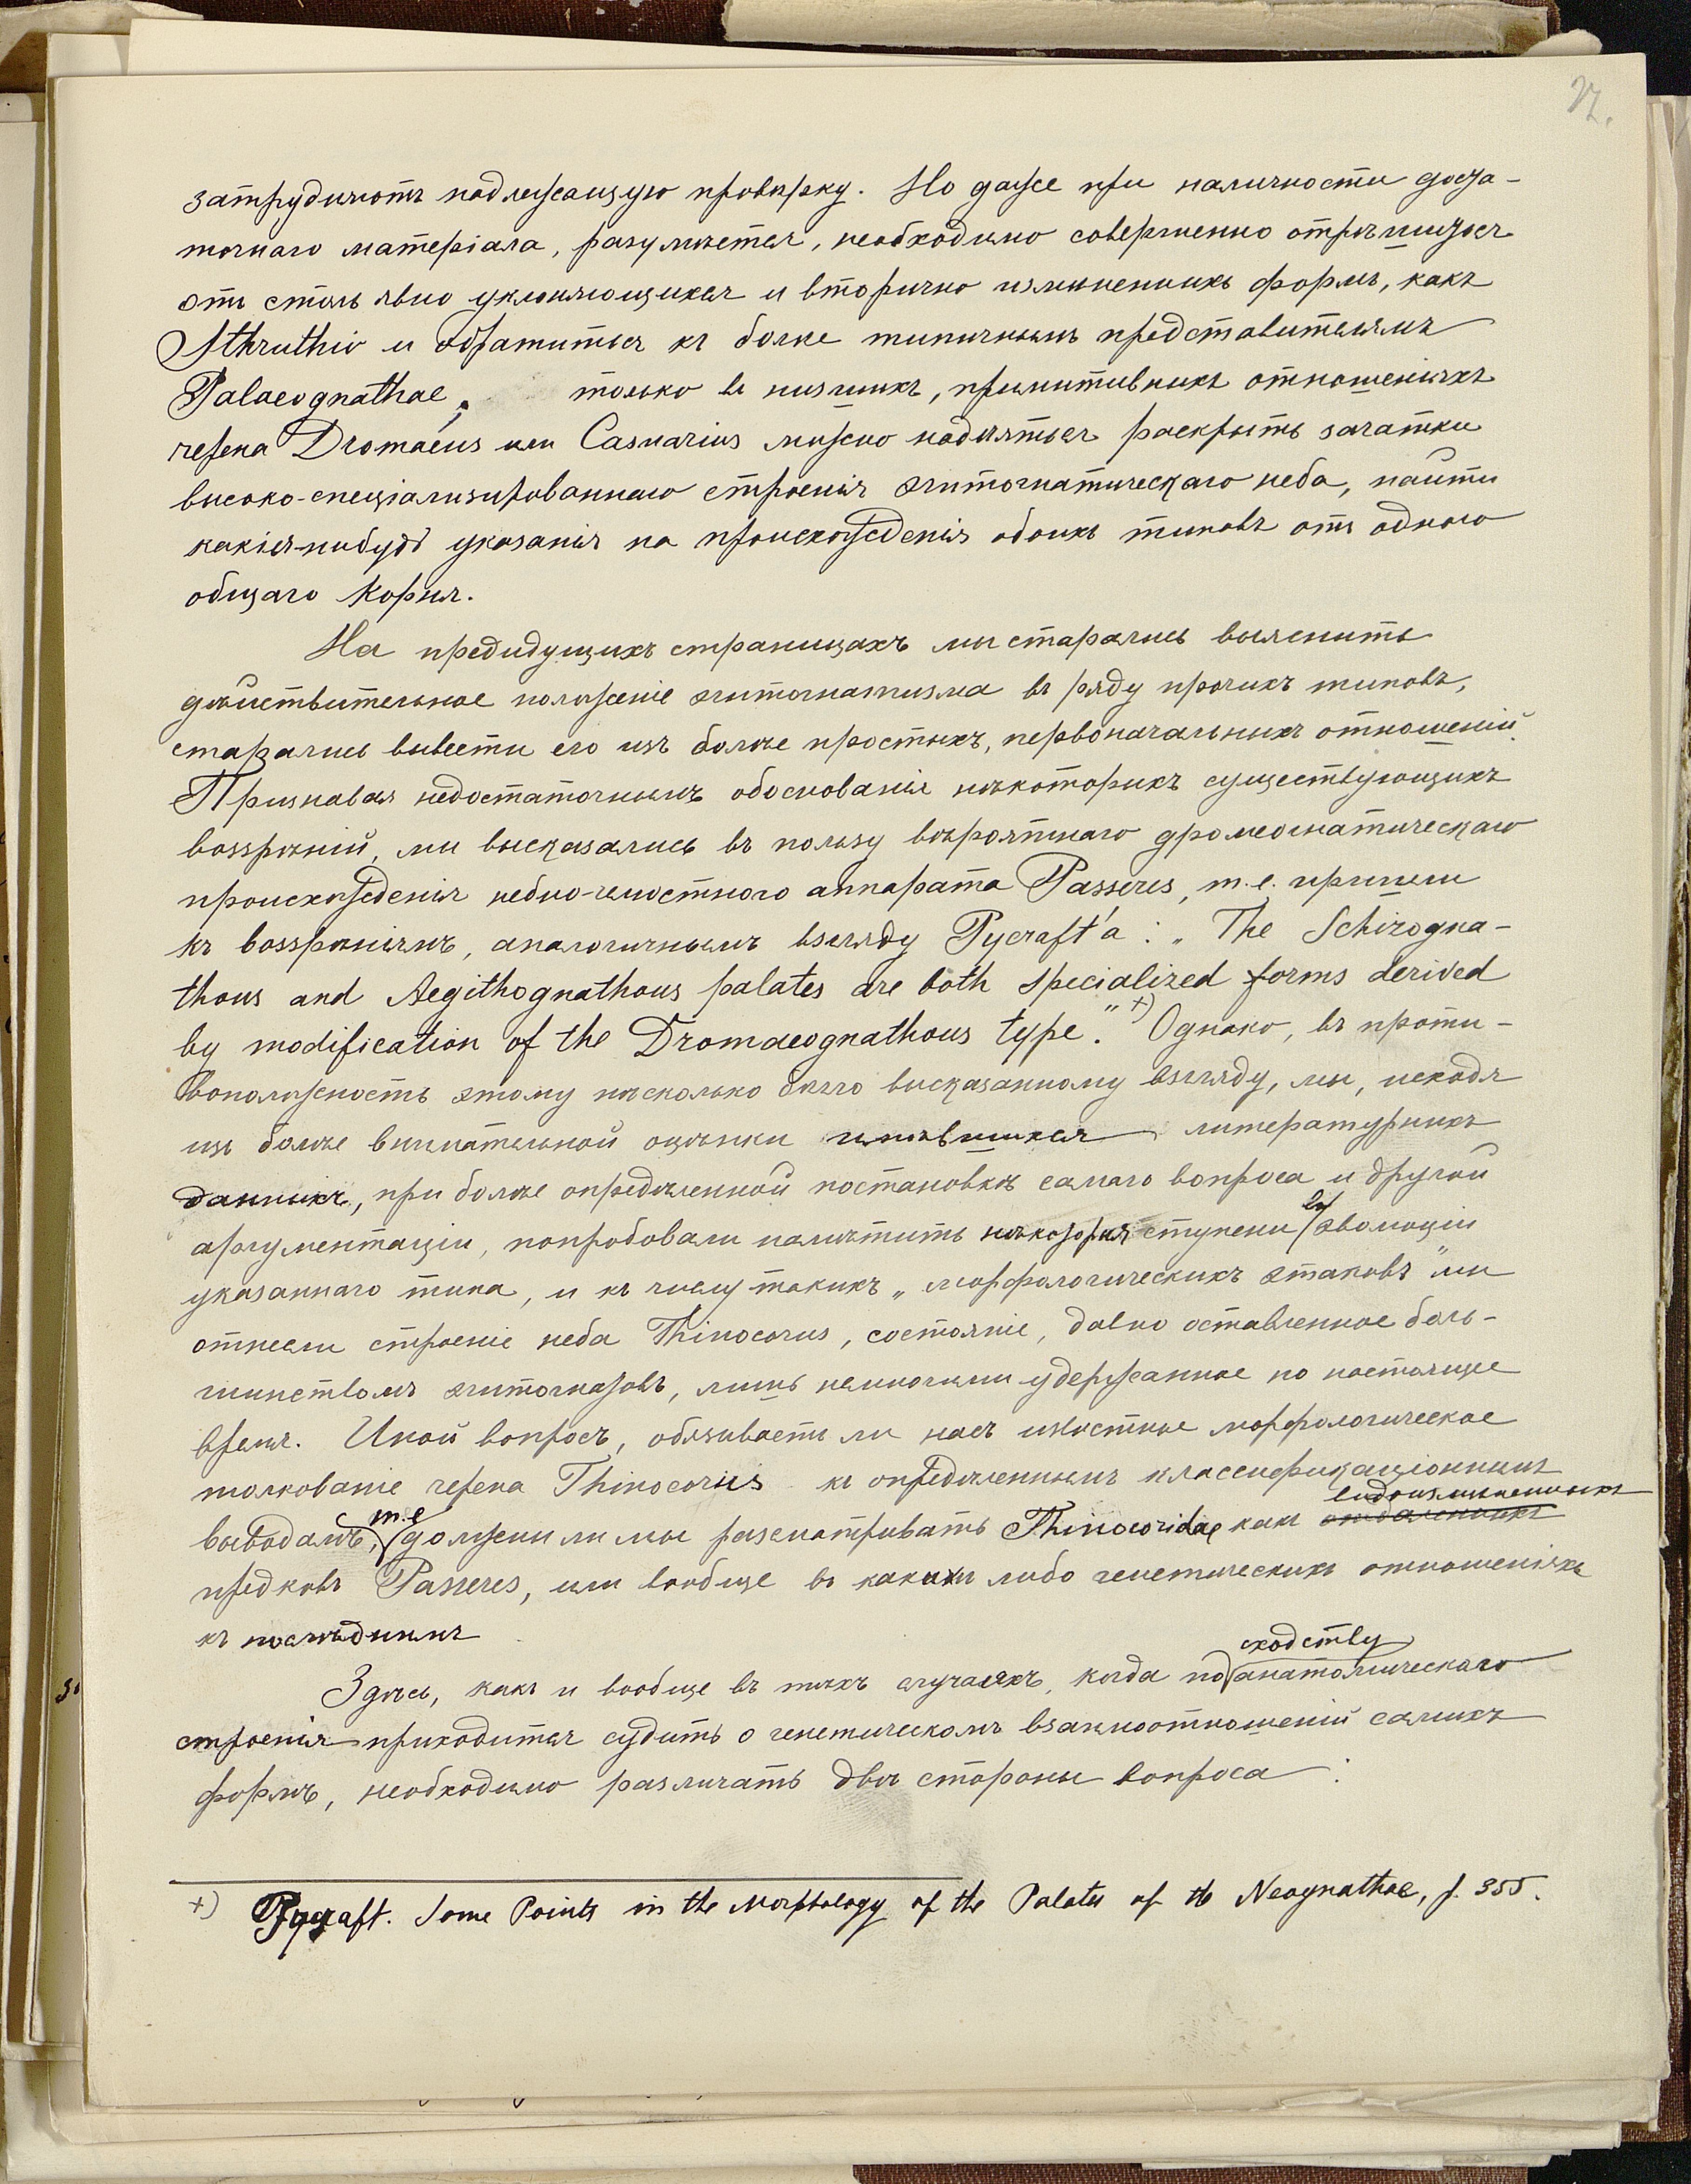 затрудняютъ надлежащую провѣрку. Но даже при наличности доста-
точнаго матеріала, разумѣется, необходимо совершенно отрѣшиться
отъ столь явно уклоняющихся и вторично измѣненныхъ формъ, какъ
Sthruthio и обратиться къ болѣе типичнымъ представителямъ
Palaeognathae; только въ низшихъ, примитивныхъ отношеніяхъ
черепа Dromaeus или Casuarius можно надѣяться раскрыть зачатки
высоко-спеціализированнаго строенія эгитогнатическаго неба, найти
какія-нибудь указанія на происхожденія обоихъ типовъ отъ одного
общаго корня.
На предидущихъ страницахъ мы старались выяснить
дѣйствительное положеніе эгитогнатизма въ ряду прочихъ типовъ,
старались вывести его изъ болѣе простыхъ, первоначальныхъ отношеній.
Признавая недостаточнымъ обоснованіе нѣкоторыхъ существующихъ
воззрѣній, мы высказались въ пользу вѣроятнаго дромеогнатическаго
происхожденія небно-челюстного аппарата Passeres, т.е. пришли
къ воззрѣніямъ, аналогичнымъ взгляду Pycraft'а: „The Schizogna-
thous and Aegithognathous palates are both specialized forms derived
by modification of the Dromaeognathous type." +) Однако, въ проти-
воположность этому нѣсколько бѣгло высказанному взгляду, мы, исходя
изъ болѣе внимательной оцѣнки имѣвшихся литературныхъ
данныхъ, при болѣе опредѣленной постановкѣ самаго вопроса и другой
аргументаціи, попробовали намѣтить нѣкоторыя ступени въ эволюціи
указаннаго типа, и къ числу такихъ „морфологическихъ этаповъ" мы
отнесли строеніе неба Thinocorus, состояніе, давно оставленное боль-
шинствомъ эгитогнатовъ, лишь немногими удержанное по настоящее
время. Иной вопросъ, обязываетъ ли насъ извѣстное морфологическое
толкованіе черепа Thinocorus къ опредѣленнымъ классификаціоннымъ
выводамъ, т.е должны ли мы разсматривать Thinocoridae какъ видоизмѣненныхъ
предковъ Passeres, или вообще въ какихъ либо генетическихъ отношеніяхъ
къ послѣднимъ
Здѣсь, какъ и вообще въ тѣхъ случаяхъ, когда по сходству анатомическаго
строенія приходится судить о генетическомъ взаимоотношеніи самихъ
формъ, необходимо различать двѣ стороны вопроса:
+) Pycraft. Some Points in the Morphology of the Palate of the Neognathae, p. 355.